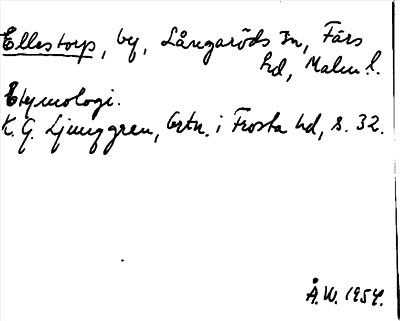 Ellestorp, by, Långaröds sn, Färs
hd, Malm. l.
Etymologi.
K. G. Ljunggren, Ortn. i Frosta hd, s. 32.
Å.W. 1954.